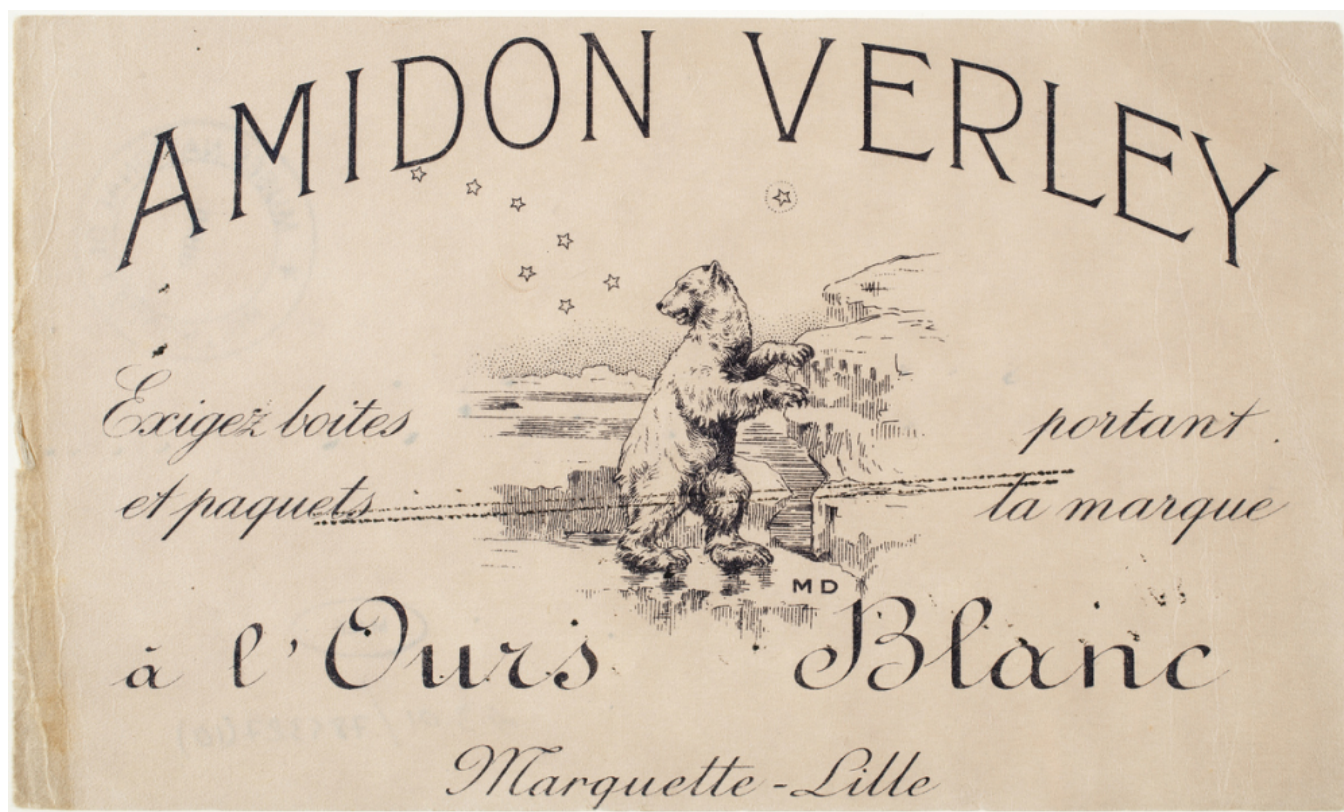 AMIDON VERLEY
Exigez boites portant
et paquets la marque
MD
à l'Ours Blanc
Marquette-Lille